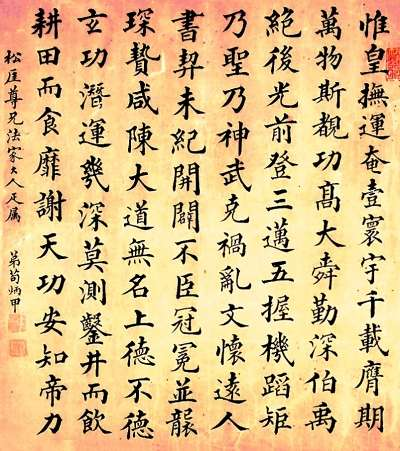 惟皇撫運奄壹寰宇千載膺期
萬物斯覩功髙大舜勤深伯禹
絕後光前登三邁五握機蹈矩
乃聖乃神武克禍亂文懷遠人
書契未紀開闢不臣冠冕並襲
琛贄咸陳大道無名上德不德
玄功潛運幾深莫測鑿井而飲
耕田而食靡謝天功安知帝力
松匡尊兄法家大人疋属
弟荀炳甲